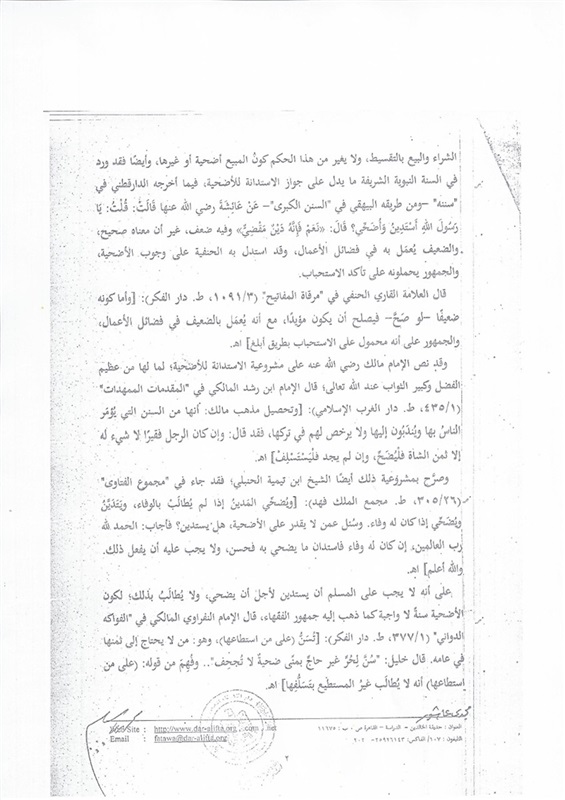 الشراء والبيع بالتقسيط، ولا يغير من هذا الحكم كونُ المبيع أضحية أو غيرها، وأيضًا فقد ورد
في السنة النبوية الشريفة ما يدل على جواز الاستدانة للأضحية، فيما أخرجه الدارقطني في
"سننه" –ومن طريقه البيهقي في "السنن الكبرى"– عَنْ عَائِشَةَ رضي الله عنها قَالَتْ: قُلْتُ: يَا
رَسُولَ اللهِ أَسْتَدِينُ وَأُضَحِّي؟ قَالَ: «نَعَمْ فَإِنَّهُ دَيْنٌ مَقْضِيٌّ» وفيه ضعف، غير أن معناه صحيح،
والضعيف يُعمَل به في فضائل الأعمال، وقد استدل به الحنفية على وجوب الأضحية،
والجمهور يحملونه على تأكد الاستحباب.
قال العلامة القاري الحنفي في "مرقاة المفاتيح" (٣/ ١٠٩١، ط. دار الفكر): [وأما كونه
ضعيفًا –لو صَحَّ– فيصلح أن يكون مؤيدًا، مع أنه يُعمَل بالضعيف في فضائل الأعمال،
والجمهور على أنه محمول على الاستحباب بطريق أبلغ] اهـ.
وقد نص الإمام مالك رضي الله عنه على مشروعية الاستدانة للأضحية؛ لما لها من عظيم
الفضل وكبير الثواب عند الله تعالى؛ قال الإمام ابن رشد المالكي في "المقدمات الممهدات"
(١/ ٤٣٥، ط. دار الغرب الإسلامي): [وتحصيل مذهب مالك: أنها من السنن التي يُؤْمَر
الناسُ بها ويُندَبُون إليها ولا يرخص لهم في تركها، فقد قال: وإن كان الرجل فقيرًا لا شيء له
إلا ثمن الشاة فليُضَحِّ، وإن لم يجد فَلْيَسْتَسْلِفْ] اهـ.
وصرَّح بمشروعية ذلك أيضًا الشيخ ابن تيمية الحنبلي؛ فقد جاء في "مجموع الفتاوى"
(٢٦/ ٣٠٥، ط. مجمع الملك فهد): [ويُضحِّي المَدينُ إذا لم يُطالَبْ بالوفاء، ويَتَدَيَّنُ
ويُضَحِّي إذا كان له وفاء. وسُئل عمن لا يقدر على الأضحية، هل يستدين؟ فأجاب: الحمد لله
رب العالمين، إن كان له وفاء فاستدان ما يضحي به فحسن، ولا يجب عليه أن يفعل ذلك.
والله أعلم] اهـ.
على أنه لا يجب على المسلم أن يستدين لأجل أن يضحي، ولا يُطالَبُ بذلك؛ لكون
الأضحية سنةً لا واجبة كما ذهب إليه جمهور الفقهاء، قال الإمام النفراوي المالكي في "الفواكه
الدواني" (١/ ٣٧٧، ط. دار الفكر): [تُسَنُّ (على من استطاعها)، وهو: من لا يحتاج إلى ثمنها
في عامه. قال خليل: "سُنَّ لِحُرٍّ غير حاجٍّ بمنًى ضحيةٌ لا تُجحِف".. وفُهِمَ من قوله: (على من
استطاعها) أنه لا يُطالَب غيرُ المستطيع بتَسَلُّفِها] اهـ.
العنوان : حديقة الخالدين – الدراسة – القاهرة ص ب : ١١٦٧٥
Web Site : http://www.dar-alifta.org , com , net
Email : fatawa@dar-alifta.org
٢